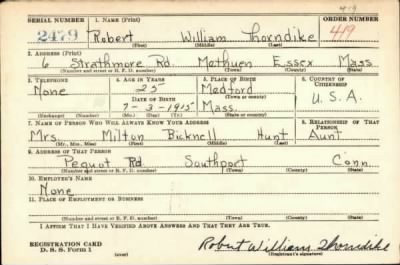 419
SERIAL NUMBER 1. NAME (Print) ORDER NUMBER
2479 Robert William Thorndike 419
(First) (Middle) (Last)
2. ADDRESS (Print)
6 Strathmore Rd. Methuen Essex Mass
(Number and street or R. F. D. number) (Town) (County) (State)
3. TELEPHONE 4. AGE IN YEARS 5. PLACE OF BIRTH 6. COUNTRY OF CITIZENSHIP
None 25 Medford
DATE OF BIRTH (Town or county) U.S.A.
7-3-1915 Mass.
(Exchange) (Number) (Mo.) (Day) (Yr.) (State or country)
7. NAME OF PERSON WHO WILL ALWAYS KNOW YOUR ADDRESS 8. RELATIONSHIP OF THAT PERSON
Mrs Milton Bicknell Hunt Aunt
(Mr., Mrs., Miss) (First) (Middle) (Last)
9. ADDRESS OF THAT PERSON
Pequot Rd Southport Conn.
(Number and street or R. F. D. number) (Town) (County) (State)
10. EMPLOYER'S NAME
None
11. PLACE OF EMPLOYMENT OR BUSINESS
(Number and street or R. F. D. number) (Town) (County) (State)
I AFFIRM THAT I HAVE VERIFIED ABOVE ANSWERS AND THAT THEY ARE TRUE.
REGISTRATION CARD
D. S. S. Form 1 (over) Robert William Thorndike
(Registrant's signature)